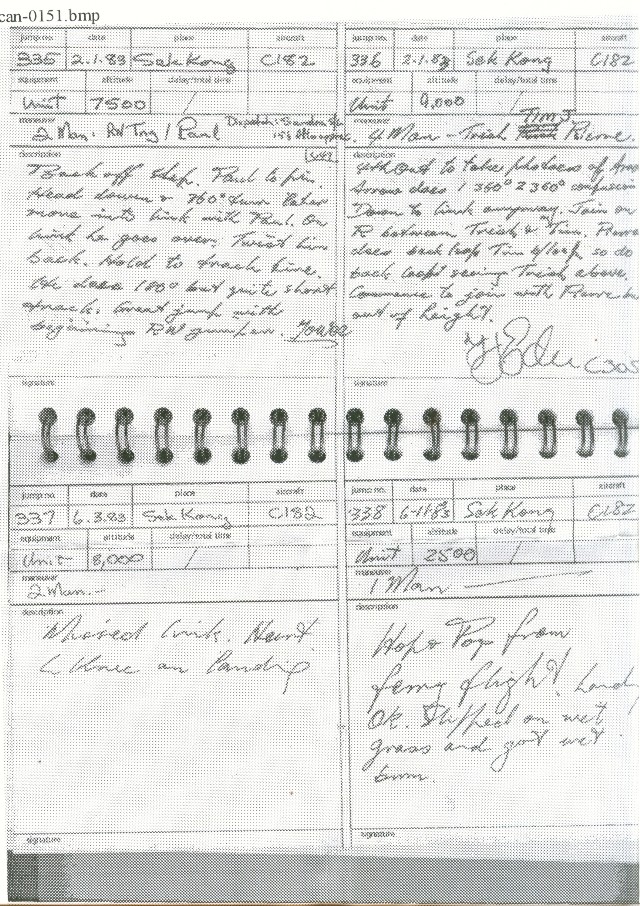 can-0151.bmp
jump no. date place aircraft
335 2.1.83 Sek Kong C182
equipment altitude delay/total time
Unit 7500 /
maneuver
2 Man. RW Trng / Paul
description
Back off step. Paul to pin.
Head down & 360° turn later
move into link with Paul. On
link he goes over. Twist him
back. Hold to track time.
He does 180° but quite short
track. Great jump with
beginning RW jumper.
signature
jump no. date place aircraft
336 2.1.83 Sek Kong C182
equipment altitude delay/total time
Unit 9,000 /
Tim J.
maneuver
4 Man - Trish Pierre.
description
4th Out to take photoes of
does 1 360° 2 360° confusion
Down to link anyway. Join on
R between Trish & Tim.
does back loop Tim so do
back loop seeing Trish above.
Commence to join with
out of height.
C305
signature
jump no. date place aircraft
337 6.3.83 Sek Kong C182
equipment altitude delay/total time
Unit 8,000 /
maneuver
2 Man. -
description
Missed link. Hurt
L Knee on landing
signature
jump no. date place aircraft
338 6-11-83 Sek Kong C182
equipment altitude delay/total time
Unit 2500 /
maneuver
1 Man
description
Hop & Pop from
ferry flight. Land
OK. Slipped on wet
grass and got wet
bum.
signature